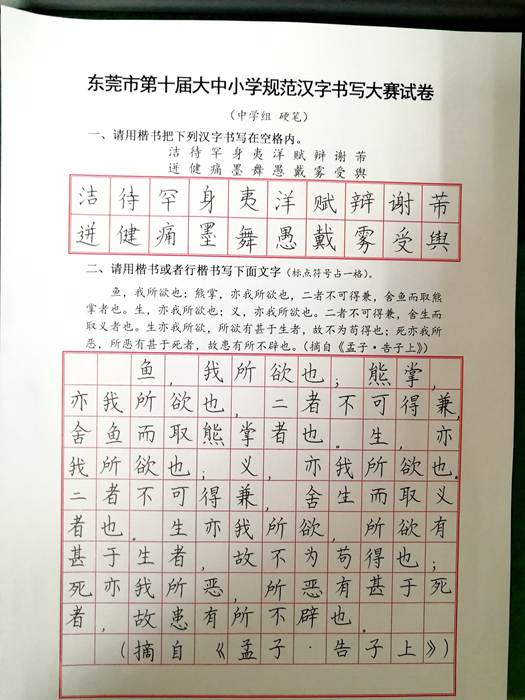 东莞市第十届大中小学规范汉字书写大赛试卷
（中学组 硬笔）
一、请用楷书把下列汉字书写在空格内。
洁 待 罕 身 夷 洋 赋 辩 谢 芾
迸 健 痛 墨 舞 愚 戴 雾 受 舆
洁待罕身夷洋赋辩谢芾
迸健痛墨舞愚戴雾受舆
二、请用楷书或者行楷书写下面文字（标点符号占一格）。
鱼，我所欲也；熊掌，亦我所欲也，二者不可得兼，舍鱼而取熊
掌者也。生，亦我所欲也；义，亦我所欲也。二者不可得兼，舍生而
取义者也。生亦我所欲，所欲有甚于生者，故不为苟得也；死亦我所
恶，所恶有甚于死者，故患有所不辟也。（摘自《孟子·告子上》）
鱼，我所欲也；熊掌，
亦我所欲也，二者不可得兼，
舍鱼而取熊掌者也。生，亦
我所欲也；义，亦我所欲也。
二者不可得兼，舍生而取义
者也。生亦我所欲，所欲有
甚于生者，故不为苟得也；
死亦我所恶，所恶有甚于死
者，故患有所不辟也。
（摘自《孟子·告子上》）